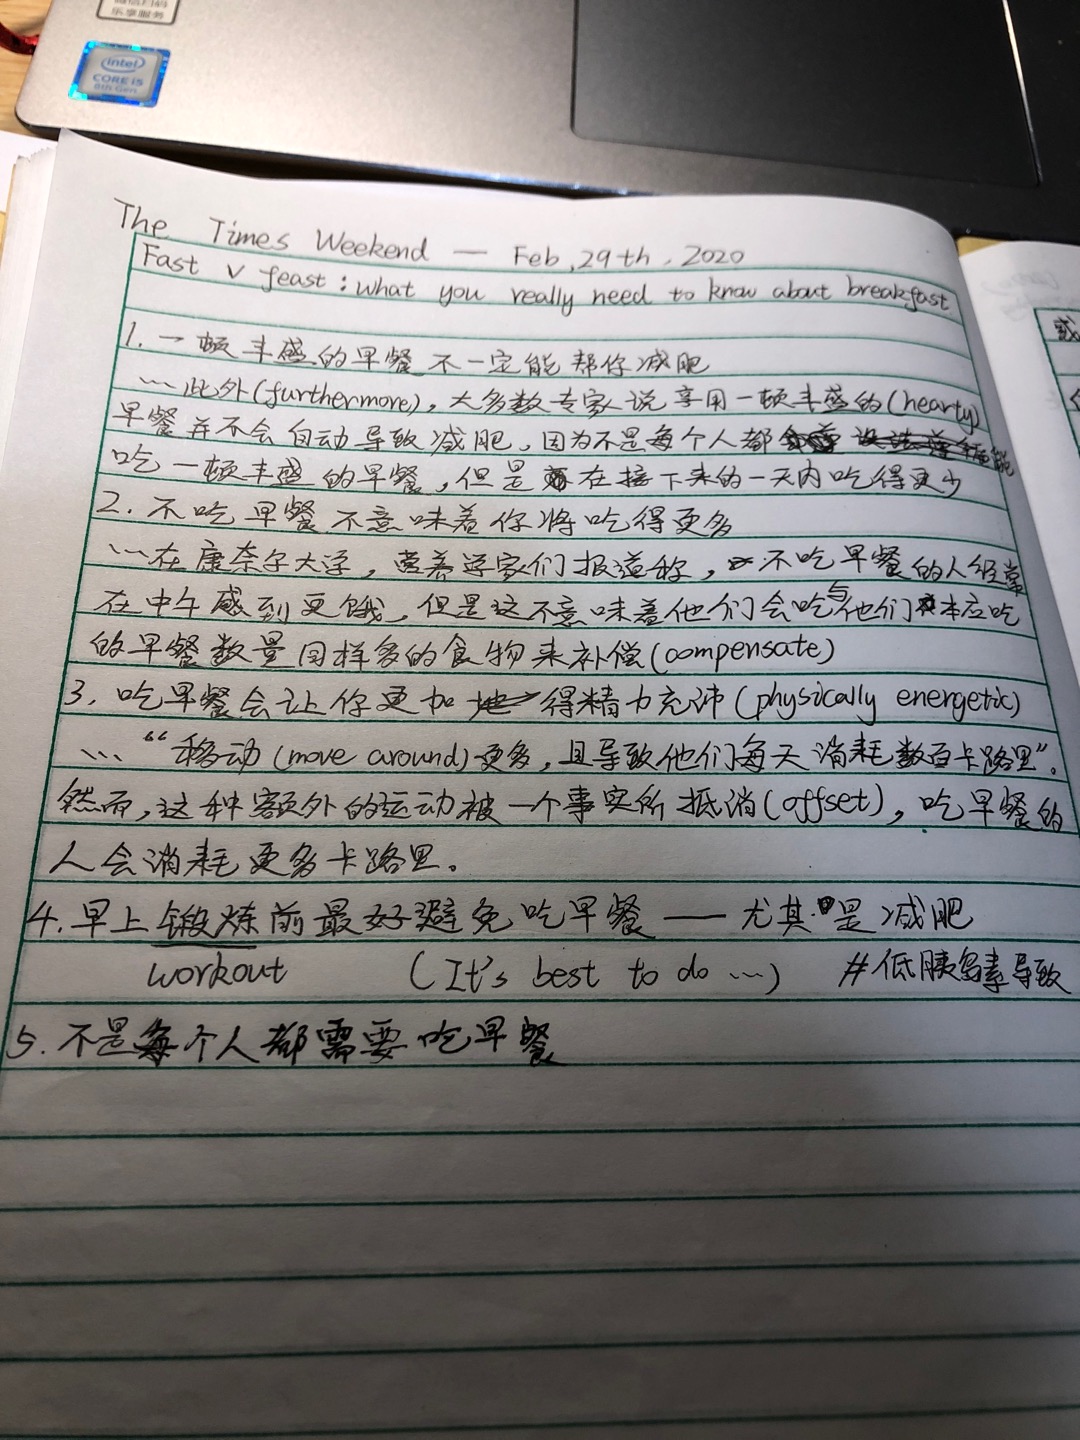 乐享服务
intel
CORE i5
8th Gen
The Times Weekend — Feb, 29th, 2020
Fast v feast : what you really need to know about breakfast
1. 一顿丰盛的早餐不一定能帮你减肥
... 此外(furthermore), 大多数专家说享用一顿丰盛的(hearty)
早餐并不会自动导致减肥, 因为不是每个人都能
吃一顿丰盛的早餐, 但是在接下来的一天内吃得更少
2. 不吃早餐不意味着你将吃得更多
... 在康奈尔大学, 营养学家们报道称, 不吃早餐的人经常
在中午感到更饿, 但是这不意味着他们会吃与他们本应吃
的早餐数量同样多的食物来补偿(compensate)
3. 吃早餐会让你更加得精力充沛(physically energetic)
... “移动(move around)更多, 且导致他们每天消耗数百卡路里”.
然而, 这种额外的运动被一个事实所抵消(offset), 吃早餐的
人会消耗更多卡路里。
4. 早上锻炼前最好避免吃早餐 —— 尤其是减肥
workout (It's best to do ...) #低胰岛素导致
5. 不是每个人都需要吃早餐
或